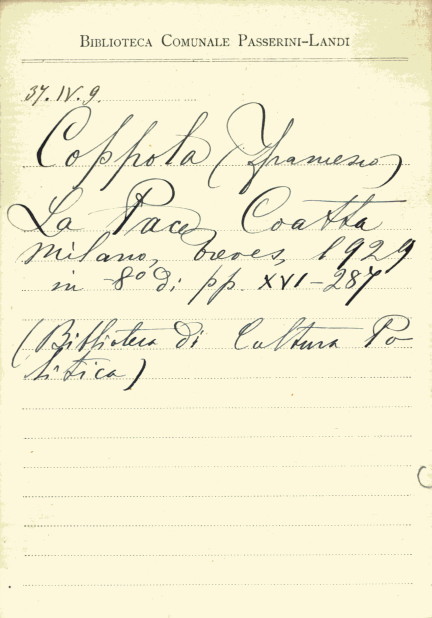 BIBLIOTECA COMUNALE PASSERINI-LANDI
37.IV.9.
Coppola (Francesco)
La Pace Coatta
Milano, Treves, 1929
in -8° di pp. XVI-287
(Biblioteca di Cultura Po-
litica)